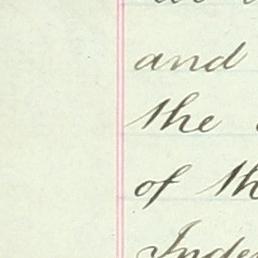 and
the
of th
Inde